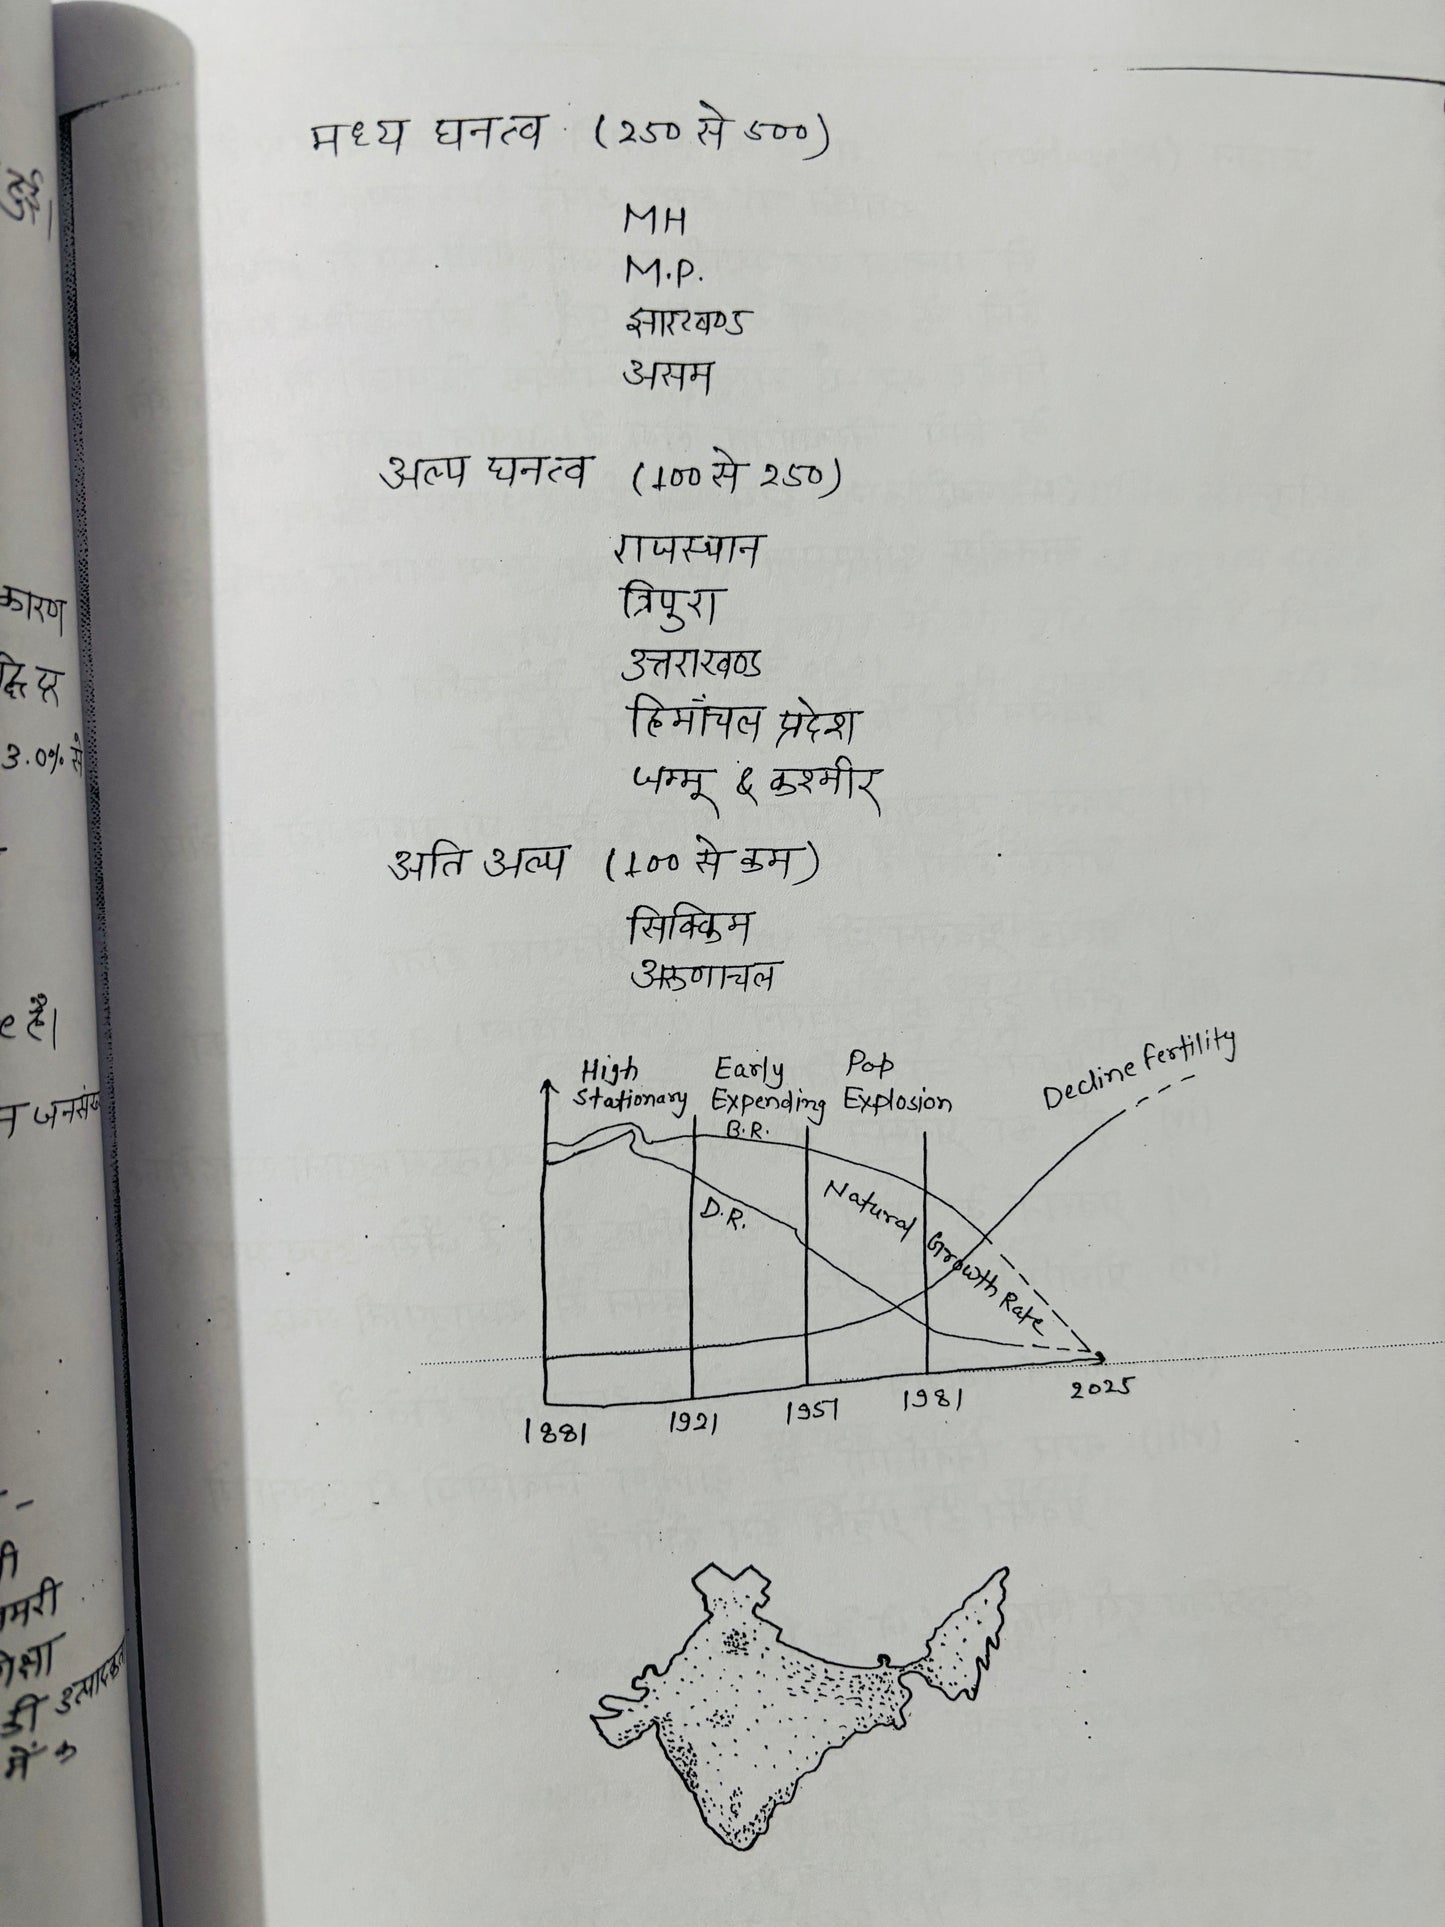 मध्य घनत्व (250 से 500)
MH
M.P.
झारखण्ड
असम
अल्प घनत्व (100 से 250)
राजस्थान
त्रिपुरा
उत्तराखण्ड
हिमाँचल प्रदेश
जम्मू & कश्मीर
अति अल्प (100 से कम)
सिक्किम
अरुणाचल
High Stationary
Early Expending
Pop Explosion
Decline Fertility
B.R.
D.R.
Natural Growth Rate
1881
1921
1951
1981
2025
कारण
दर
3.0% से
e है।
उत्पादकता
में